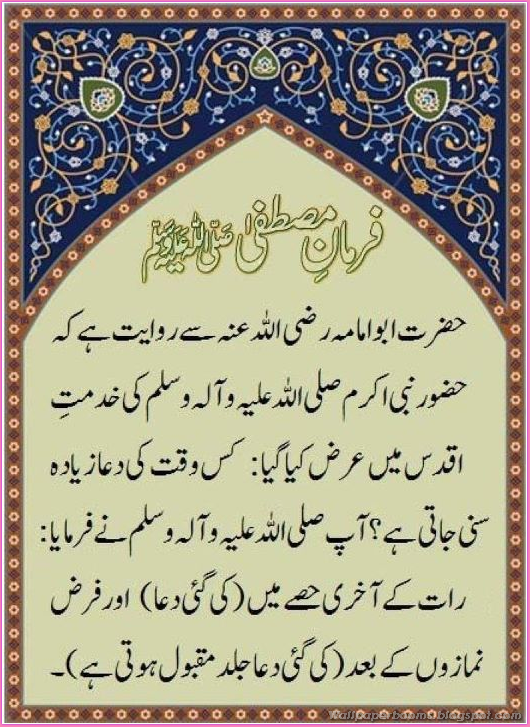 فرمانِ مصطفیٰ صلی اللہ علیہ وسلم
حضرت ابو امامہ رضی اللہ عنہ سے روایت ہے کہ
حضور نبی اکرم صلی اللہ علیہ وآلہ وسلم کی خدمتِ
اقدس میں عرض کیا گیا: کس وقت کی دعا زیادہ
سنی جاتی ہے؟ آپ صلی اللہ علیہ وآلہ وسلم نے فرمایا:
رات کے آخری حصے میں (کی گئی دعا) اور فرض
نمازوں کے بعد (کی گئی دعا جلد مقبول ہوتی ہے)۔
Wallpaperbanms.blogspot.com